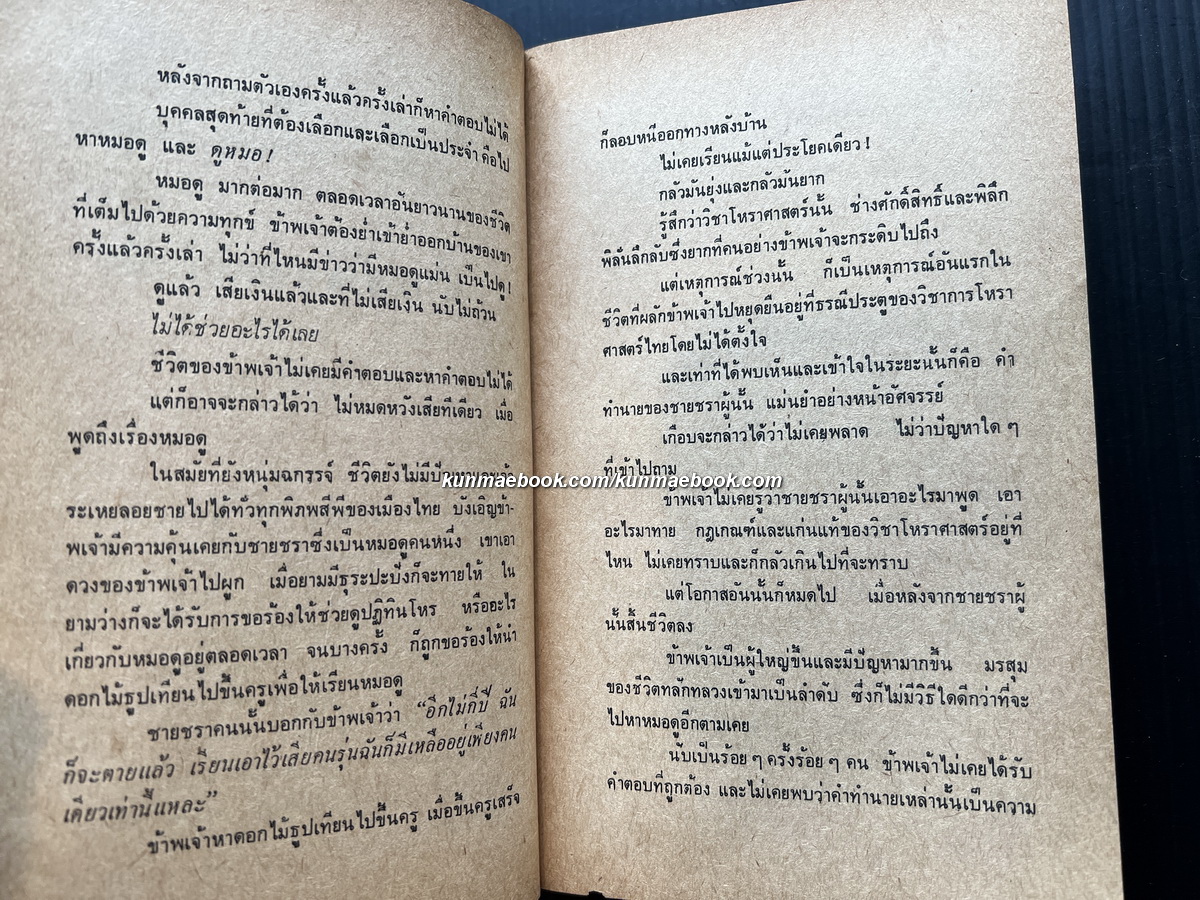 หลังจากถามตัวเองครั้งแล้วครั้งเล่าก็หาคำตอบไม่ได้
บุคคลสุดท้ายที่ต้องเลือกและเลือกเป็นประจำ คือไป
หาหมอดู และ ดูหมอ!
หมอดู มากต่อมาก ตลอดเวลาอันยาวนานของชีวิต
ที่เต็มไปด้วยความทุกข์ ข้าพเจ้าต้องย่ำเข้าย่ำออกบ้านของเขา
ครั้งแล้วครั้งเล่า ไม่ว่าที่ไหนมีข่าวว่ามีหมอดูแม่น เป็นไปดู!
ดูแล้ว เสียเงินแล้วและที่ไม่เสียเงิน นับไม่ถ้วน
ไม่ได้ช่วยอะไรได้เลย
ชีวิตของข้าพเจ้าไม่เคยมีคำตอบและหาคำตอบไม่ได้
แต่ก็อาจจะกล่าวได้ว่า ไม่หมดหวังเสียทีเดียว เมื่อ
พูดถึงเรื่องหมอดู
ในสมัยที่ยังหนุ่มฉกรรจ์ ชีวิตยังไม่มี
kunmaebook.com/kunmaebook.com
ระเหยลอยชายไปได้ทั่วทุกพิภพสีพีของเมืองไทย บังเอิญข้า-
พเจ้ามีความคุ้นเคยกับชายชราซึ่งเป็นหมอดูคนหนึ่ง เขาเอา
ดวงของข้าพเจ้าไปผูก เมื่อยามมีธุระปะปังก็จะทายให้ ใน
ยามว่างก็จะได้รับการขอร้องให้ช่วยดูปฏิทินโหร หรืออะไร
เกี่ยวกับหมอดูอยู่ตลอดเวลา จนบางครั้ง ก็ถูกขอร้องให้นำ
ดอกไม้ธูปเทียนไปขึ้นครูเพื่อให้เรียนหมอดู
ชายชราคนนั้นบอกกับข้าพเจ้าว่า “อีกไม่กี่ปี ฉัน
ก็จะตายแล้ว เรียนเอาไว้เสียคนรุ่นฉันก็มีเหลืออยู่เพียงคน
เดียวเท่านี้แหละ”
ข้าพเจ้าหาดอกไม้ธูปเทียนไปขึ้นครู เมื่อขึ้นครูเสร็จ
ก็ลอบหนีออกทางหลังบ้าน
ไม่เคยเรียนแม้แต่ประโยคเดียว!
กลัวมันยุ่งและกลัวมันยาก
รู้สึกว่าวิชาโหราศาสตร์นั้น ช่างศักดิ์สิทธิ์และพิลึก
พิลั่นลึกลับซึ่งยากที่คนอย่างข้าพเจ้าจะกระดิบไปถึง
แต่เหตุการณ์ช่วงนั้น ก็เป็นเหตุการณ์อันแรกใน
ชีวิตที่ผลักข้าพเจ้าไปหยุดยืนอยู่ที่ธรณีประตูของวิชาการโหรา
ศาสตร์ไทยโดยไม่ได้ตั้งใจ
และเท่าที่ได้พบเห็นและเข้าใจในระยะนั้นก็คือ คำ
ทำนายของชายชราผู้นั้น แม่นยำอย่างหน้าอัศจรรย์
เกือบจะกล่าวได้ว่าไม่เคยพลาด ไม่ว่าปัญหาใด ๆ
ที่เข้าไปถาม
ข้าพเจ้าไม่เคยรู้ว่าชายชราผู้นั้นเอาอะไรมาพูด เอา
อะไรมาทาย กฎเกณฑ์และแก่นแท้ของวิชาโหราศาสตร์อยู่ที่
ไหน ไม่เคยทราบและก็กลัวเกินไปที่จะทราบ
แต่โอกาสอันนั้นก็หมดไป เมื่อหลังจากชายชราผู้
นั้นสิ้นชีวิตลง
ข้าพเจ้าเป็นผู้ใหญ่ขึ้นและมีปัญหามากขึ้น มรสุม
ของชีวิตทลักทลวงเข้ามาเป็นลำดับ ซึ่งก็ไม่มีวิธีใดดีกว่าที่จะ
ไปหาหมอดูอีกตามเคย
นับเป็นร้อย ๆ ครั้งร้อย ๆ คน ข้าพเจ้าไม่เคยได้รับ
คำตอบที่ถูกต้อง และไม่เคยพบว่าคำทำนายเหล่านั้นเป็นความ